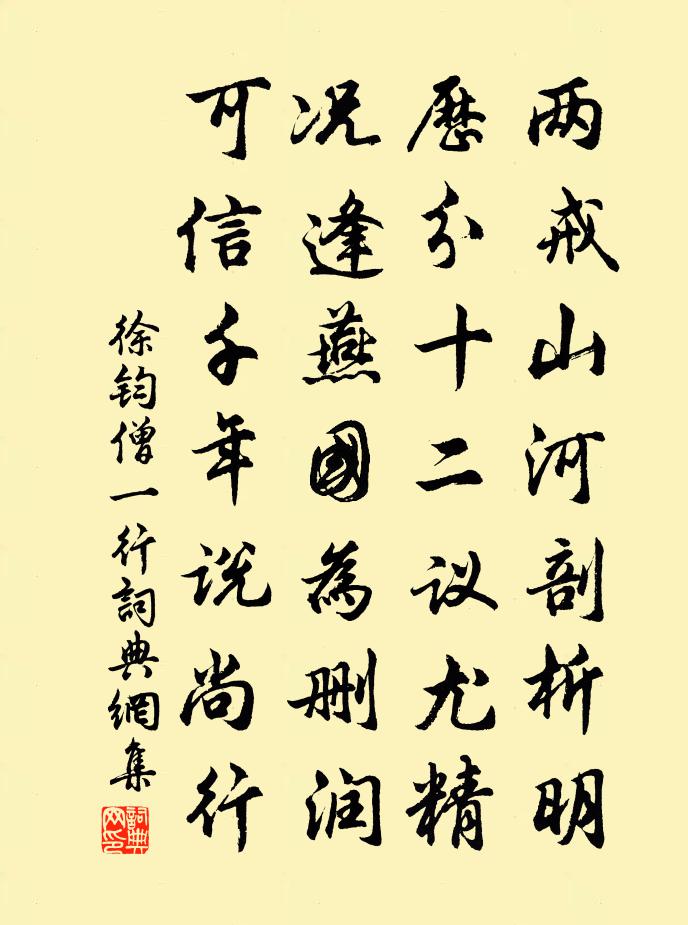 两戒山河剖析明
歷分十二议尤精
况逢燕國為删润
可信千年说尚行
徐钧僧一行詞典網集
詞典
网印